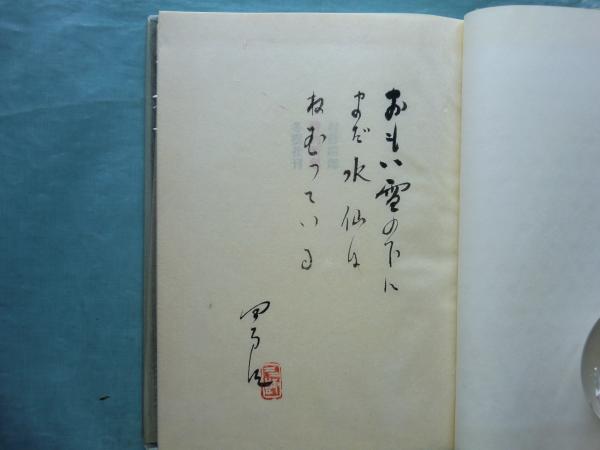 おもい雪の下に
まだ水仙は
ねむっている